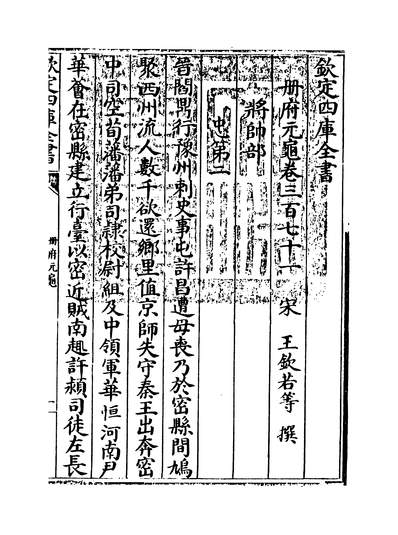 欽定四庫全書
冊府元龜卷三百七十一 宋 王欽若等 撰
將帥部
忠第二
晉閻鼎行豫州刺史事屯許昌遭母喪乃於密縣間鳩
聚西州流人數千欲還鄉里值京師失守秦王出奔密
中司空荀藩藩弟司隸校尉組及中領軍華恒河南尹
華薈在密縣建立行臺以密近賊南趣許潁司徒左長
欽定四庫全書
冊府元龜